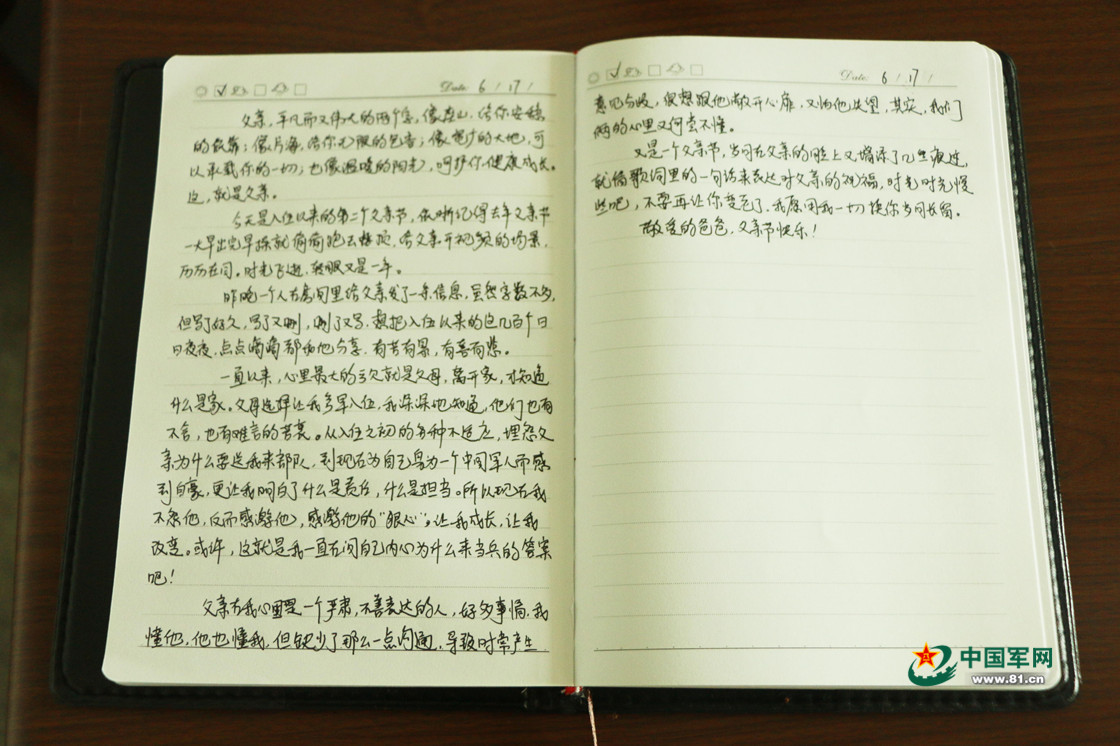 Date 6 / 17 /
父亲,平凡而又伟大的两个字,像高山,给你安稳
的依靠;像大海,给你无限的包容;像宽广的大地,可
以承载你的一切;也像温暖的阳光,呵护你健康成长。
这,就是父亲。
今天是入伍以来的第二个父亲节,依晰记得去年父亲节
一大早出完早操就偷偷跑去楼顶,给父亲开视频的场景,
历历在目。时光飞逝,转眼又是一年。
昨晚一个人在房间里给父亲发了一条信息,虽然字数不多,
但写了好久,写了又删,删了又写,想把入伍以来的这几百个日
日夜夜,点点滴滴都和他分享,有苦有累,有喜有悲。
一直以来,心里最大的亏欠就是父母,离开家,才知道
什么是家。父母选择让我参军入伍,我深深地知道,他们也有
不舍,也有难言的苦衷。从入伍之初的各种不适应,埋怨父
亲为什么要送我来部队,到现在为自己身为一个中国军人而感
到自豪,更让我明白了什么是责任,什么是担当。所以现在我
不怨他,反而感谢他,感谢他的“狠心”。让我成长,让我
改变。或许,这就是我一直在问自己内心为什么来当兵的答案
吧!
父亲在我心里是一个严肃,不善表达的人,好多事情,我
懂他,他也懂我,但缺少了那么一点沟通,导致时常产生
Date 6 / 17 /
意见分歧,很想跟他敞开心扉,又怕他失望,其实,我们
俩的心里又何尝不懂。
又是一个父亲节,岁月在父亲的脸上又增添了几丝痕迹,
就借歌词里的一句话来表达对父亲的祝福,时光时光慢
些吧,不要再让你变老了,我愿用我一切换你岁月长留。
敬爱的爸爸,父亲节快乐!
中国军网
www.81.cn